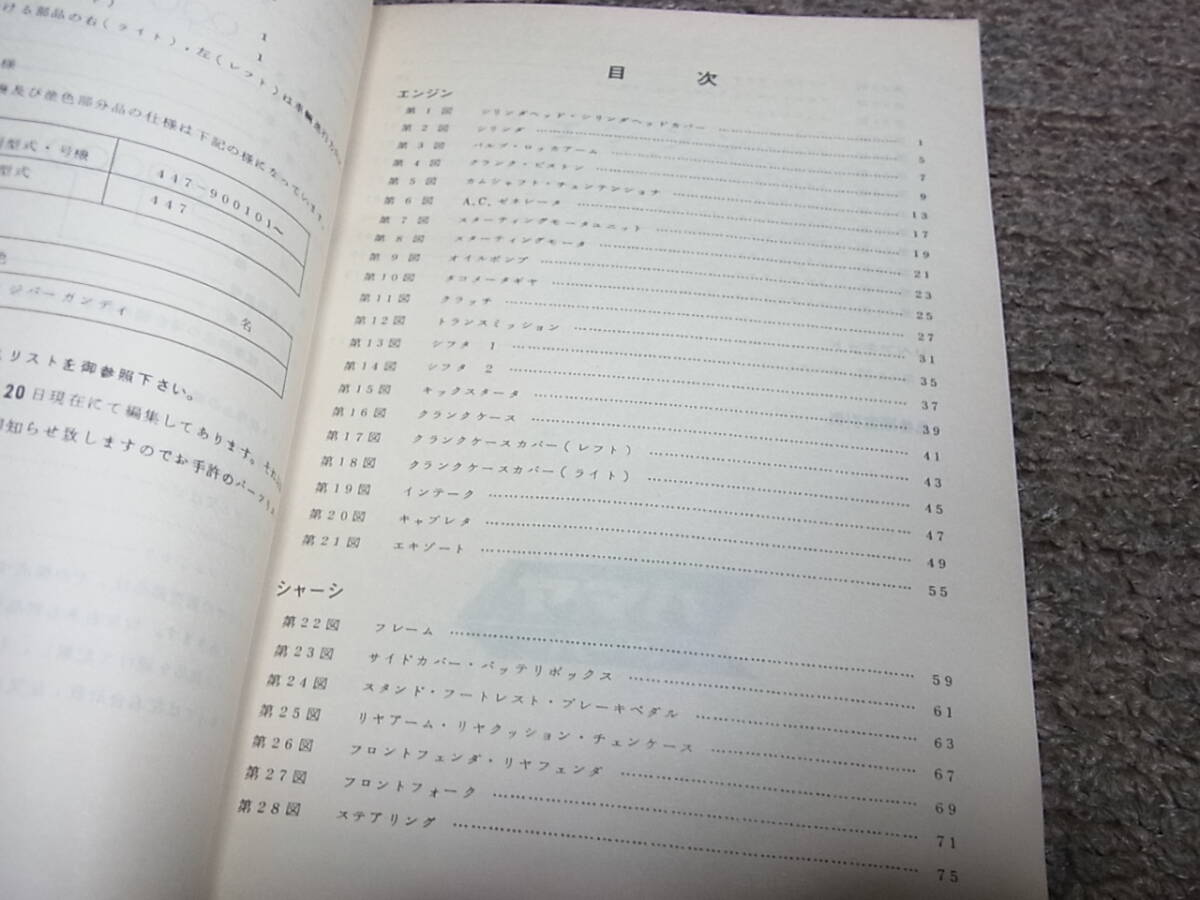 1
ける部品の右(ライト)・左(レフト)は車輛
1
様
及び塗色部分品の仕様は下記の様になっています。
型式・号機
447-900101~
型式
447
色
名
ジバーガンディ
リストを御参照下さい。
20日現在にて編集してあります。
知らせ致しますのでお手許のパーツリ
目 次
エンジン
第1図 シリンダヘッド・シリンダヘッドカバー 1
第2図 シリンダ 5
第3図 バルブ・ロッカアーム 7
第4図 クランク・ピストン 9
第5図 カムシャフト・チェンテンショナ 13
第6図 A.C.ゼネレータ 17
第7図 スターティングモータユニット 19
第8図 スターティングモータ 21
第9図 オイルポンプ 23
第10図 タコメータギヤ 25
第11図 クラッチ 27
第12図 トランスミッション 31
第13図 シフタ 1 35
第14図 シフタ 2 37
第15図 キックスタータ 39
第16図 クランクケース 41
第17図 クランクケースカバー(レフト) 43
第18図 クランクケースカバー(ライト) 45
第19図 インテーク 47
第20図 キャブレタ 49
第21図 エキゾート 55
シャーシ
第22図 フレーム 59
第23図 サイドカバー・バッテリボックス 61
第24図 スタンド・フートレスト・ブレーキペダル 63
第25図 リヤアーム・リヤクッション・チェンケース 67
第26図 フロントフェンダ・リヤフェンダ 69
第27図 フロントフォーク 71
第28図 ステアリング 75